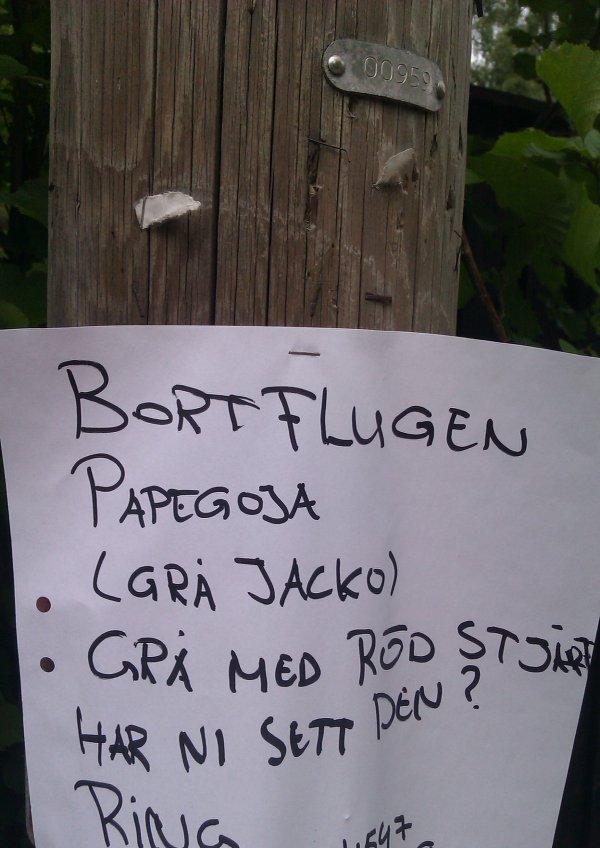 00959
BORTFLUGEN
PAPEGOJA
(GRÅ JACKO)
GRÅ MED RÖD STJÄRT
HAR NI SETT DEN?
RING